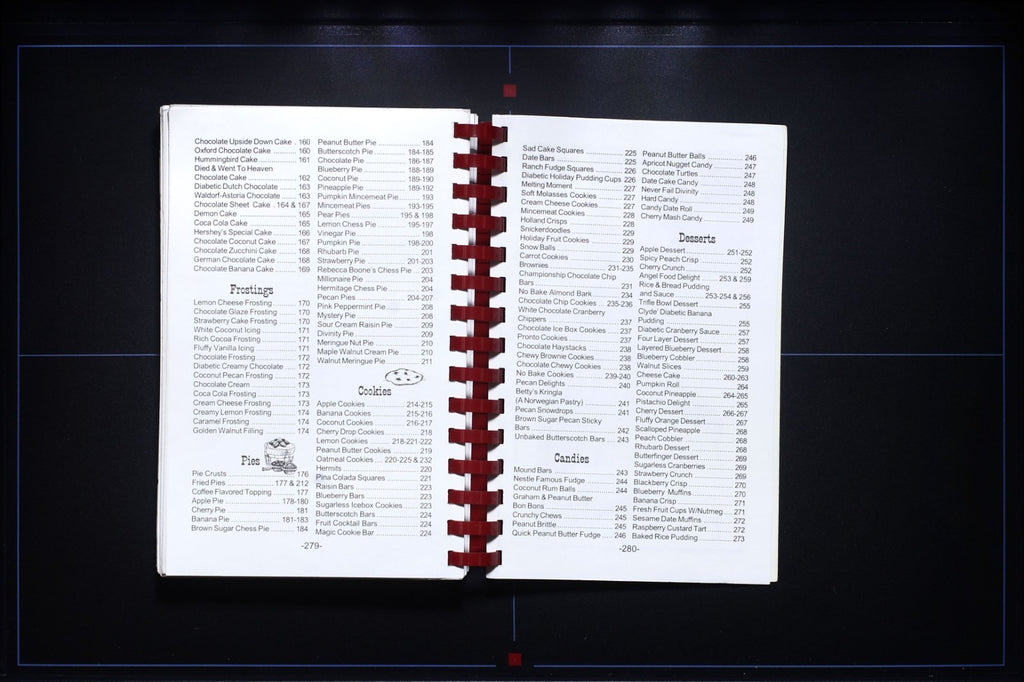 Chocolate Upside Down Cake . 160
Oxford Chocolate Cake ........... 160
Hummingbird Cake ................. 161
Died & Went To Heaven
Chocolate Cake ..................... 162
Diabetic Dutch Chocolate ....... 163
Waldorf-Astoria Chocolate ...... 163
Chocolate Sheet Cake . 164 & 167
Demon Cake .......................... 165
Coca Cola Cake ..................... 165
Hershey's Special Cake .......... 166
Chocolate Coconut Cake ........ 167
Chocolate Zucchini Cake ........ 168
German Chocolate Cake ........ 168
Chocolate Banana Cake ......... 169
Frostings
Lemon Cheese Frosting .......... 170
Chocolate Glaze Frosting ........ 170
Strawberry Cake Frosting ........ 170
White Coconut Icing ................ 171
Rich Cocoa Frosting ................ 171
Fluffy Vanilla Icing ................... 171
Chocolate Frosting .................. 172
Diabetic Creamy Chocolate ..... 172
Coconut Pecan Frosting .......... 172
Chocolate Cream .................... 173
Coca Cola Frosting .................. 173
Cream Cheese Frosting .......... 173
Creamy Lemon Frosting .......... 174
Caramel Frosting ..................... 174
Golden Walnut Filling ............... 174
Pies
Pie Crusts ............................... 176
Fried Pies ...................... 177 & 212
Coffee Flavored Topping ......... 177
Apple Pie ......................... 178-180
Cherry Pie ............................... 181
Banana Pie ...................... 181-183
Brown Sugar Chess Pie .......... 184
Peanut Butter Pie .................... 184
Butterscotch Pie ............... 184-185
Chocolate Pie ................... 186-187
Blueberry Pie .................... 188-189
Coconut Pie ...................... 189-190
Pineapple Pie ................... 189-192
Pumpkin Mincemeat Pie ......... 193
Mincemeat Pies ................ 193-195
Pear Pies ...................... 195 & 198
Lemon Chess Pie ............. 195-197
Vinegar Pie ............................. 198
Pumpkin Pie ..................... 198-200
Rhubarb Pie ............................ 201
Strawberry Pie .................. 201-203
Rebecca Boone's Chess Pie ... 203
Millionaire Pie .......................... 204
Hermitage Chess Pie .............. 204
Pecan Pies ....................... 204-207
Pink Peppermint Pie ................ 208
Mystery Pie ............................. 208
Sour Cream Raisin Pie ............ 209
Divinity Pie .............................. 209
Meringue Nut Pie .................... 210
Maple Walnut Cream Pie ........ 210
Walnut Meringue Pie ............... 211
Cookies
Apple Cookies .................. 214-215
Banana Cookies ............... 215-216
Coconut Cookies .............. 216-217
Cherry Drop Cookies ............... 218
Lemon Cookies .... 218-221-222
Peanut Butter Cookies ............ 219
Oatmeal Cookies .... 220-225 & 232
Hermits .................................... 220
Pina Colada Squares ............... 221
Raisin Bars .............................. 223
Blueberry Bars ........................ 223
Sugarless Icebox Cookies ....... 223
Butterscotch Bars .................... 224
Fruit Cocktail Bars ................... 224
Magic Cookie Bar .................... 224
-279-
Sad Cake Squares .................. 225
Date Bars ................................ 225
Ranch Fudge Squares ............ 226
Diabetic Holiday Pudding Cups 226
Melting Moment ...................... 227
Soft Molasses Cookies ............ 227
Cream Cheese Cookies .......... 227
Mincemeat Cookies ................. 228
Holland Crisps ......................... 228
Snickerdoodles ........................ 229
Holiday Fruit Cookies .............. 229
Snow Balls .............................. 229
Carrot Cookies ........................ 230
Brownies .......................... 231-235
Championship Chocolate Chip
Bars ........................................ 231
No Bake Almond Bark ............. 234
Chocolate Chip Cookies ... 235-236
White Chocolate Cranberry
Chippers ................................. 237
Chocolate Ice Box Cookies ..... 237
Pronto Cookies ........................ 237
Chocolate Haystacks ............... 238
Chewy Brownie Cookies .......... 238
Chocolate Chewy Cookies ...... 238
No Bake Cookies .............. 239-240
Pecan Delights ........................ 240
Betty's Kringla
(A Norwegian Pastry) .............. 241
Pecan Snowdrops ................... 241
Brown Sugar Pecan Sticky
Bars ........................................ 242
Unbaked Butterscotch Bars .... 243
Candies
Mound Bars ............................ 243
Nestle Famous Fudge ............. 244
Coconut Rum Balls .................. 244
Graham & Peanut Butter
Bon Bons ................................ 245
Crunchy Chews ....................... 245
Peanut Brittle ........................... 245
Quick Peanut Butter Fudge ..... 246
Peanut Butter Balls .................. 246
Apricot Nugget Candy ............. 247
Chocolate Turtles .................... 247
Date Cake Candy .................... 248
Never Fail Divinity ................... 248
Hard Candy ............................. 248
Candy Date Roll ...................... 249
Cherry Mash Candy ................ 249
Desserts
Apple Dessert ................... 251-252
Spicy Peach Crisp ................... 252
Cherry Crunch ......................... 252
Angel Food Delight ....... 253 & 259
Rice & Bread Pudding
and Sauce ............... 253-254 & 256
Trifle Bowl Dessert .................. 255
Clyde' Diabetic Banana
Pudding ................................... 255
Diabetic Cranberry Sauce ....... 257
Four Layer Dessert .................. 257
Layered Blueberry Dessert ...... 258
Blueberry Cobbler ................... 258
Walnut Slices .......................... 259
Cheese Cake .................... 260-263
Pumpkin Roll ........................... 264
Coconut Pineapple ........... 264-265
Pistachio Delight ..................... 265
Cherry Dessert ................. 266-267
Fluffy Orange Dessert ............. 267
Scalloped Pineapple ............... 268
Peach Cobbler ........................ 268
Rhubarb Dessert ..................... 268
Butterfinger Dessert ................ 269
Sugarless Cranberries ............. 269
Strawberry Crunch .................. 269
Blackberry Crisp ...................... 270
Blueberry Muffins .................... 270
Banana Crisp .......................... 271
Fresh Fruit Cups W/Nutmeg .... 271
Sesame Date Muffins .............. 272
Raspberry Custard Tart ........... 272
Baked Rice Pudding ................ 273
-280-